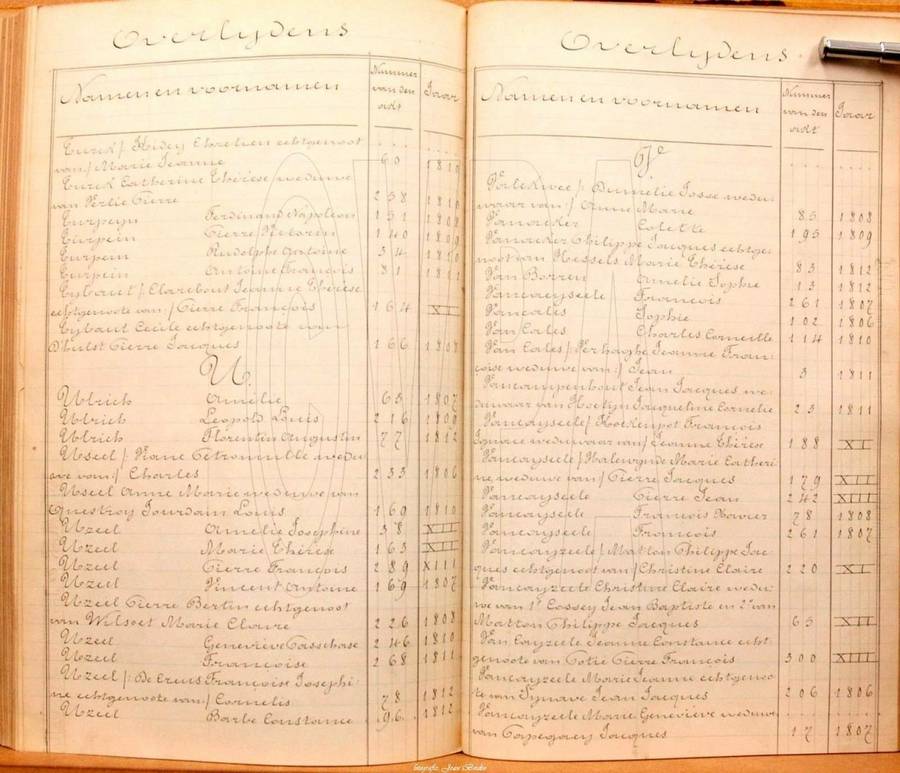 Overlijdens
Namen en voornamen
Nummer van den akt
Jaar
Turck / Hidey Chretien echtgenoot
van / Marie Jeanne 60 1810
Turck Catherine Thérèse weduwe
van Verlie Pierre 238 1810
Turpeyn Ferdinand Napoleon 151 1808
Turpein Pierre Victorin 140 1809
Turpein Rudolphe Antoine 34 1810
Turpein Antoine François 81 1811
Tybaut / Clarebout Jeanne Thérèse
echtgenoote van / Pierre François 164 XII
Tybaut Cecile echtgenoote van
D'hulst Pierre Jacques 166 1808
U.
Ulrich Amélie 63 1807
Ulrich Leopold Louis 216 1809
Ulrich Florentin Augustin 77 1812
Useel / Pétronille wedu-
we van / Charles 233 1806
Useel Anne Marie weduwe van
Questroy Jourdain Louis 169 1810
Uzeel Amelie Josephine 38 XII
Uzeel Marie Thérèse 163 XII
Uzeel Pierre François 289 XIII
Uzeel Vincent Antoine 169 1807
Uzeel Pierre Bertin echtgenoot
van Wilsoet Marie Claire 226 1808
Uzeel Geneviève 246 1810
Uzeel Françoise 268 1811
Uzeel / De Creus Françoise Josephi-
ne echtgenoote van / Cornelis 78 1812
Uzeel Barbe Constance 196 1812
Overlijdens
Namen en voornamen
Nummer van den akt
Jaar
V
Dumélie Josse wedu-
waar van / Anne Marie 85 1808
Vanacker Colette 195 1809
Vanacker Philippe Jacques echtge-
noot van Hessels Marie Thérèse 83 1812
Van Borren Amelie Sophie 13 1812
Vancayseele François 261 1807
Vancales Sophie 102 1806
Van Cales Charles Corneille 114 1810
Van Cales / Verhaghe Jeanne Fran-
çoise weduwe van / Jean 3 1811
Vancampenhout Jean Jacques we-
duwaar van Hoetijn Jaqueline Cornelie 23 1811
Vancayseele / François
Ignace weduwaar van / Jeanne Thérèse 188 XI
Vancayseele / Halewynde Marie Catheri-
ne weduwe van / Pierre Jacques 179 XII
Vancayseele Pierre Jean 242 XIII
Vancayseele François Xavier 78 1808
Vancayseele François 261 1807
Vancayzeele / Matton Philippe Jac-
ques echtgenoot van / Christine Claire 220 XI
Vancayzeele Christine Claire wedu-
we van 1° Cossey Jean Baptiste en 2° van
Matton Philippe Jacques 63 XII
Van Cayzeele Jeanne Constance echt-
genoote van Cotie Pierre François 300 XIII
Vancayzeele Marie Jeanne echtgenoo-
te van Synave Jean Jacques 206 1806
Vancayzeele Marie Geneviève weduwe
van Jacques 17 1807
fotografie: Jean Beke